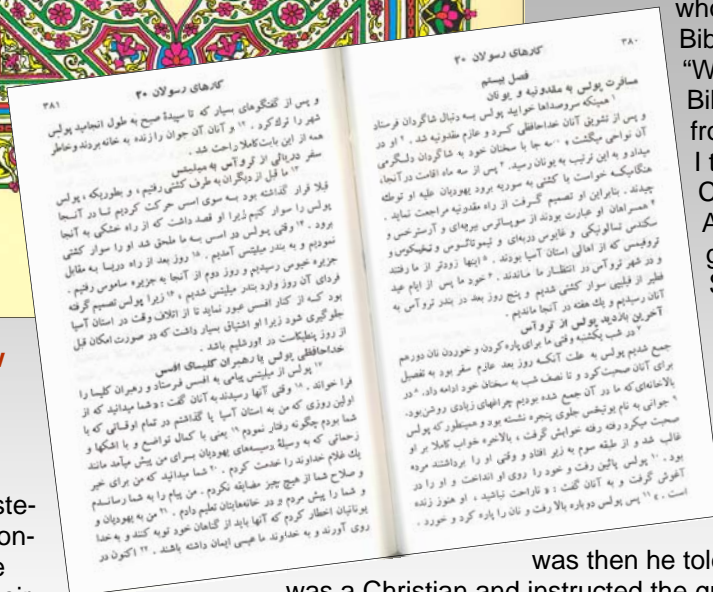 ۳۸۰
کارهای رسولان ۲۰
فصل بیستم
مسافرت پولس به مقدونیه و یونان
۱ همینکه سروصداها خوابید پولس به دنبال شاگردان فرستاد
و پس از تشویق آنان خداحافظی کرد و عازم مقدونیه شد. ۲ او در
آن نواحی میگشت و همه جا با سخنان خود به شاگردان دلگرمی
میداد و به این ترتیب به یونان رسید. ۳ پس از سه ماه اقامت در آنجا،
هنگامیکه خواست با کشتی به سوریه برود یهودیان علیه او توطئه
چیدند. بنابراین او تصمیم گرفت از راه مقدونیه مراجعت نماید.
۴ همسراهان او عبارت بودند از سوپاترس بیریه‌ای و آرسترخس و
سکندس تسالونیکی و غایوس دربه‌ای و تیموتائوس و تیخیکوس و
تروفیمس که از اهالی استان آسیا بودند. ۵ اینها زودتر از ما رفتند
و در شهر تروآس در انتظار ما ماندند. ۶ خود ما پس از ایام عید
فطیر از فیلیپی سوار کشتی شدیم و پنج روز بعد در بندر تروآس به
آنان رسیدیم و یك هفته در آنجا ماندیم.
آخرین بازدید پولس از تروآس
۷ در شب یکشنبه وقتی ما برای پاره کردن و خوردن نان دورهم
جمع شدیم پولس به علت آنکه روز بعد عازم سفر بود به تفصیل
برای آنان صحبت کرد و تا نصف شب به سخنان خود ادامه داد. ۸ در
بالاخانه‌ای که ما در آن جمع شده بودیم چراغهای زیادی روشن بود.
۹ جوانی به نام یوتیخس جلوی پنجره نشسته بود و همینطور که پولس
صحبت میکرد رفته رفته خوابش گرفت، بالاخره خواب کاملا بر او
غالب شد و از طبقه سوم به زیر افتاد و وقتی او را برداشتند مرده
بود. ۱۰ پولس پائین رفت و خود را روی او انداخت و او را در
آغوش گرفت و به آنان گفت: «ناراحت نباشید، او هنوز زنده
است.» ۱۱ پس پولس دوباره بالا رفت و نان را پاره کرد و خورد.
۳۸۱
کارهای رسولان ۲۰
و پس از گفتگوهای بسیار که تا سپیدهٔ صبح به طول انجامید پولس
شهر را ترك کرد. ۱۲ و آنان آن جوان را زنده به خانه بردند و خاطر
همه از این بابت کاملا راحت شد.
سفر دریائی از تروآس به میلیتس
۱۳ ما قبل از دیگران به طرف کشتی رفتیم، و بطوریکه، پولس
قبلا قرار گذاشته بود به سوی اسس حرکت کردیم تا در آنجا
پولس را سوار کنیم زیرا او قصد داشت که از راه خشکی به آنجا
برود. ۱۴ وقتی پولس در اسس به ما ملحق شد او را سوار کشتی
نمودیم و به بندر میلیتس آمدیم. ۱۵ روز بعد از راه دریا به مقابل
جزیره خیوس رسیدیم و روز دوم از آنجا به جزیره ساموس رفتیم.
فردای آن روز وارد بندر میلیتس شدیم، ۱۶ زیرا پولس تصمیم گرفته
بود که از کنار افسس عبور نماید تا از اتلاف وقت در استان آسیا
جلوگیری شود زیرا او اشتیاق بسیار داشت که در صورت امکان قبل
از روز پنطیکاست در اورشلیم باشد.
خداحافظی پولس با رهبران کلیسای افسس
۱۷ پولس از میلیتس پیامی به افسس فرستاد و رهبران کلیسا را
فرا خواند. ۱۸ وقتی آنها رسیدند به آنان گفت: «شما میدانید که از
اولین روزی که من به استان آسیا پا گذاشتم در تمام اوقاتی که با
شما بودم چگونه رفتار نمودم ۱۹ یعنی با کمال تواضع و با اشکها و
زحماتی که به وسیلهٔ دسیسه‌های یهودیان برای من پیش میآمد مانند
یك غلام خداوند را خدمت کردم. ۲۰ شما میدانید که من برای خیر
و صلاح شما از هیچ چیز مضایقه نکردم. من پیام را به شما رساندم
و شما را پیش مردم و در خانه‌هایتان تعلیم دادم. ۲۱ من به یهودیان و
یونانیان اخطار کردم که آنها باید از گناهان خود توبه کنند و به خدا
روی آورند و به خداوند ما عیسی ایمان داشته باشند. ۲۲ اکنون در
who
Bib
“W
Bil
fro
I t
C
A
g
S
y
ste-
on-
e
was then he told
was a Christian and instructed the gu